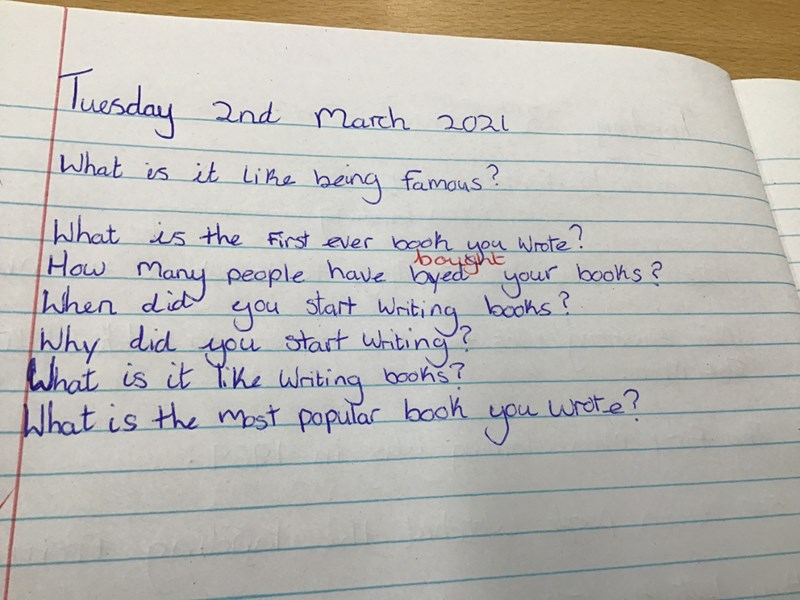 Tuesday 2nd March 2021
What is it like being famous?
What is the first ever book you wrote?
bought
How many people have byed your books?
When did you start writing books?
Why did you start writing?
What is it like writing books?
What is the most popular book you wrote?